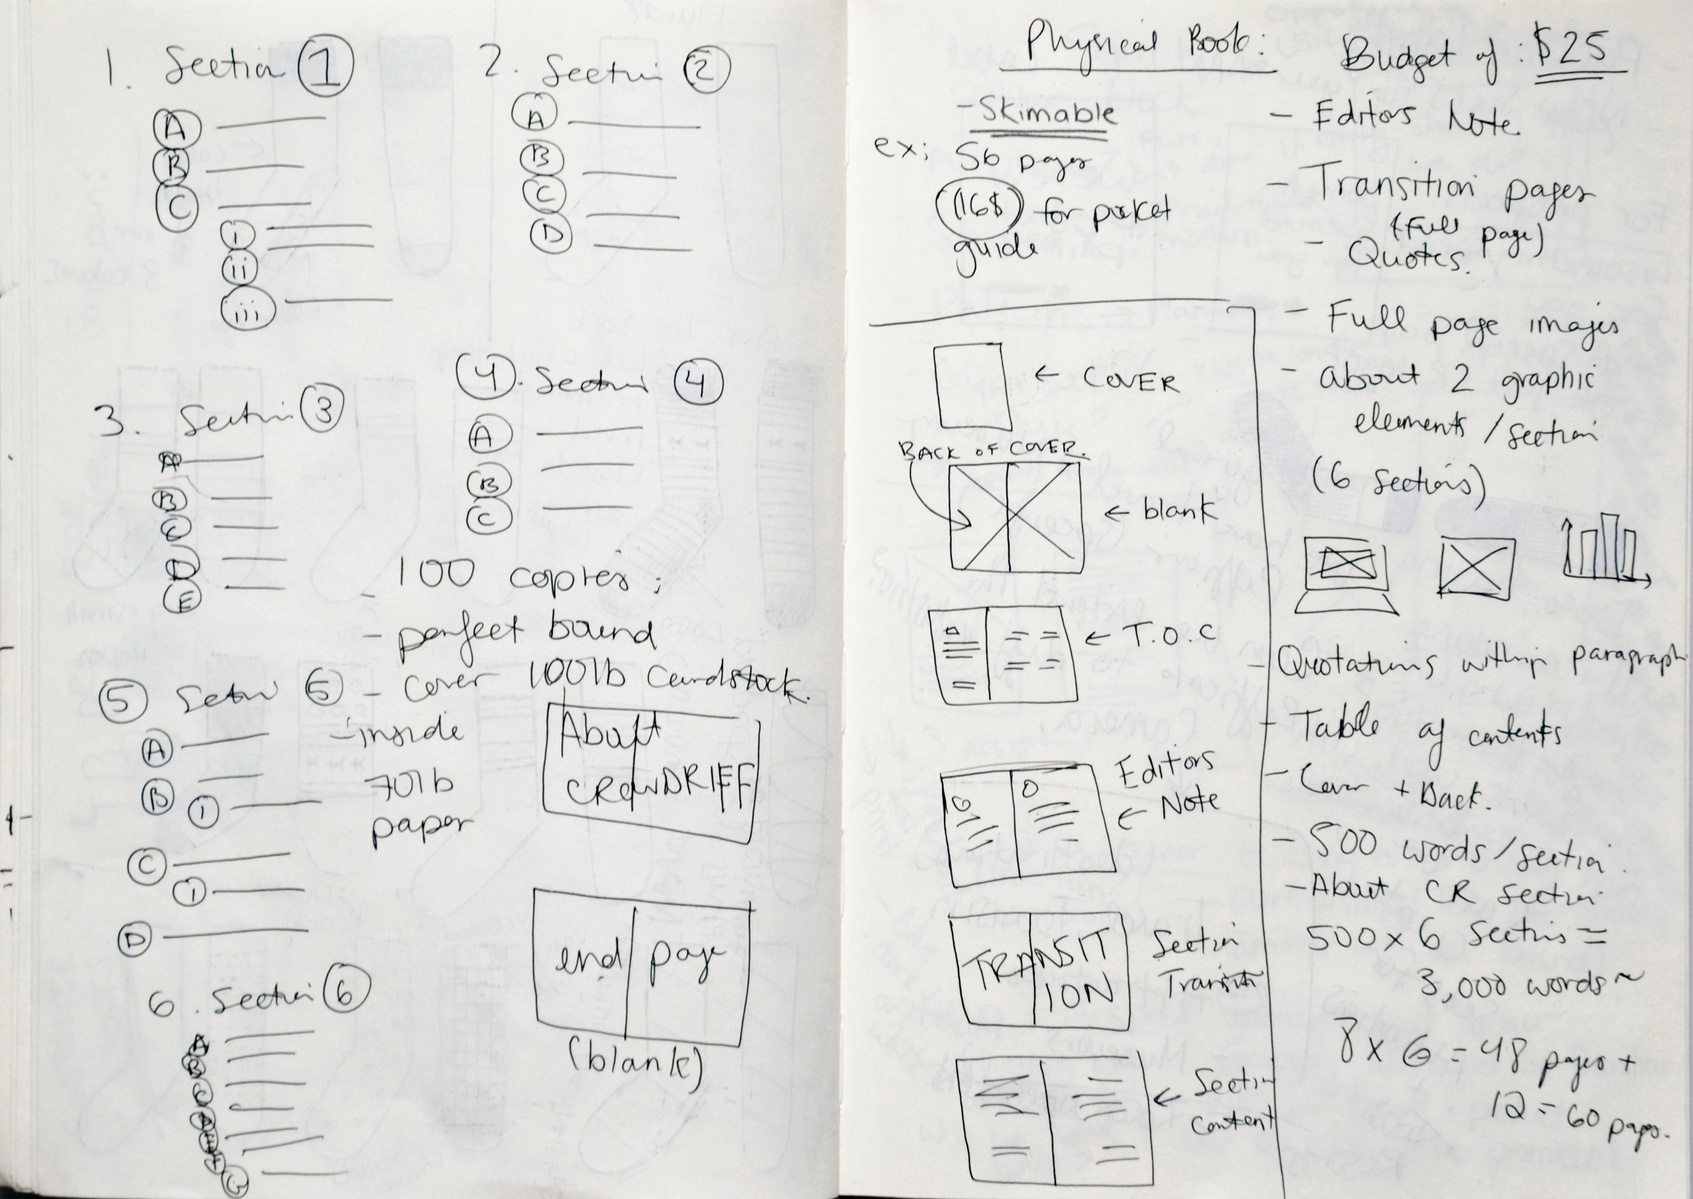 1. Section 1
A
B
C
i
ii
iii
2. Section 2
A
B
C
D
3. Section 3
A
B
C
D
E
4. Section 4
A
B
C
- 100 copies;
- perfect bound
- cover 100lb Cardstock.
- inside
70lb
paper
5 Section 5
A
B
1
C
1
D
6. Section 6
A
B
C
About
CROWDRIFF
end page
(blank)
Physical Book:
- Skimable
ex; 56 pages
(16$) for pocket
guide
← COVER
BACK OF COVER.
← blank
← T.O.C
Editors
← Note
TRANSIT
ION
Section
Transition
← Section
Content
Budget of: $25
- Editors Note
- Transition pages
(Full page)
- Quotes.
- Full page images
- about 2 graphic
elements / section
(6 sections)
- Quotations within paragraph
- Table of contents
- Cover + Back.
- 500 words/section.
- About CR section
500 x 6 sections =
3,000 words ~
8 x 6 = 48 pages +
12 = 60 pages.